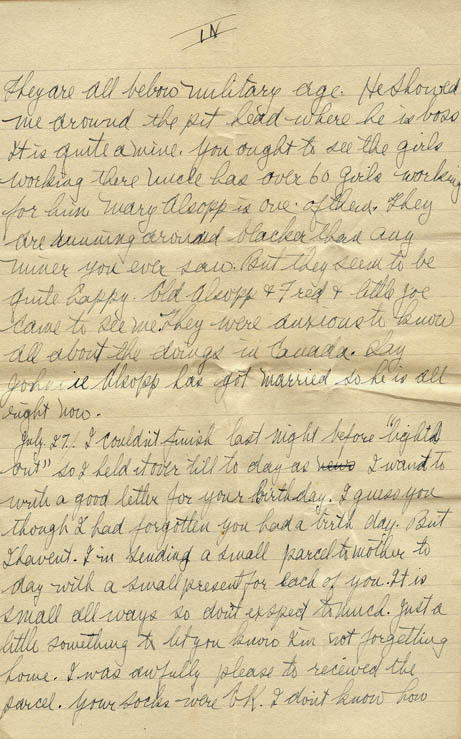 IV
They are all below military age. He showed
me around the pit head where he is boss
It is quite a mine. You ought to see the girls
working there Uncle has over 60 girls working
for him Mary Alsopp is one of them. They
are running around blacker than any
miner you ever saw. But they seem to be
quite happy. Old Alsopp & Fred & little Joe
came to see me. They were anxious to know
all about the doings in Canada. Say
Johnnie Alsopp has got married so he is all
right now.
July 27! I couldn't finish last night before "lights
out" so I held it over till to day as I want to
write a good letter for your birthday. I guess you
though I had forgotten you had a birth day. But
I havent. I'm sending a small parcel to mother to
day with a small present for each of you. It is
small all ways so dont expect to much. Just a
little something to let you know I'm not forgetting
home. I was awfully please to received the
parcel. Your socks were O.K. I dont know how